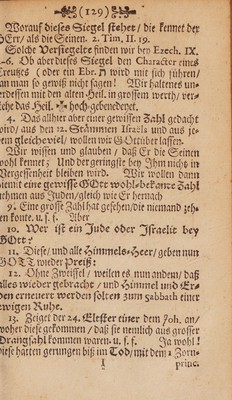 (129)
Worauf dieses Siegel stehet, die kennet der
HErr, als die Seinen. 2. Tim, II. 19.
Solche Versiegelte finden wir bey Ezech. IX.
-6. Ob aber dieses Siegel den Character eines
Creutzes (oder ein Ebr. ת wird mit sich führen/
man so gewiß nicht sagen! Wir haltenes un-
erdessen mit dem alten Heil. in grossem werth/ ver-
che das Heil. hoch-gebenedeyet.
4. Das allhier aber einer gewissen Zahl gedacht
wird/ aus den 12. Stämmen Israels und aus je-
em gleiche viel/ wollen wir GOtt über lassen.
Wir wissen und glauben/ daß Er die Seinen
wohl kennet; Und der geringste bey Ihm nicht in
Vergessenheit bleiben wird. Wir wollen dann
hiemit eine gewisse GOtt wohl-bekante Zahl
nehmen aus Juden/ gleich wie Er hernach
9. Eine grosse Zahl hat gesehen/die niemand zeh-
en konte. u. s. f. Aber
10. Wer ist ein Jude oder Israelit bey
GOtt?
11. Diese/ und alle Himmels-Heer/ geben nun
GOTT wieder Preiß:
12. Ohne Zweiffel/ weilen es nun andem/ daß
alles wieder gebracht/ und Himmel und Er-
den erneuert werden solten zum Sabbath einer
ewigen Ruhe.
13. Zeiget der 24. Eltesten einer dem Joh. an/
woher diese gekommen/ daß sie nemlich aus grosser
Drangsahl kommen waren. u. s. f. Ja wohl!
Diese hatten gerungen biß im Tod/ mit dem 2 Zorn-
I princ.